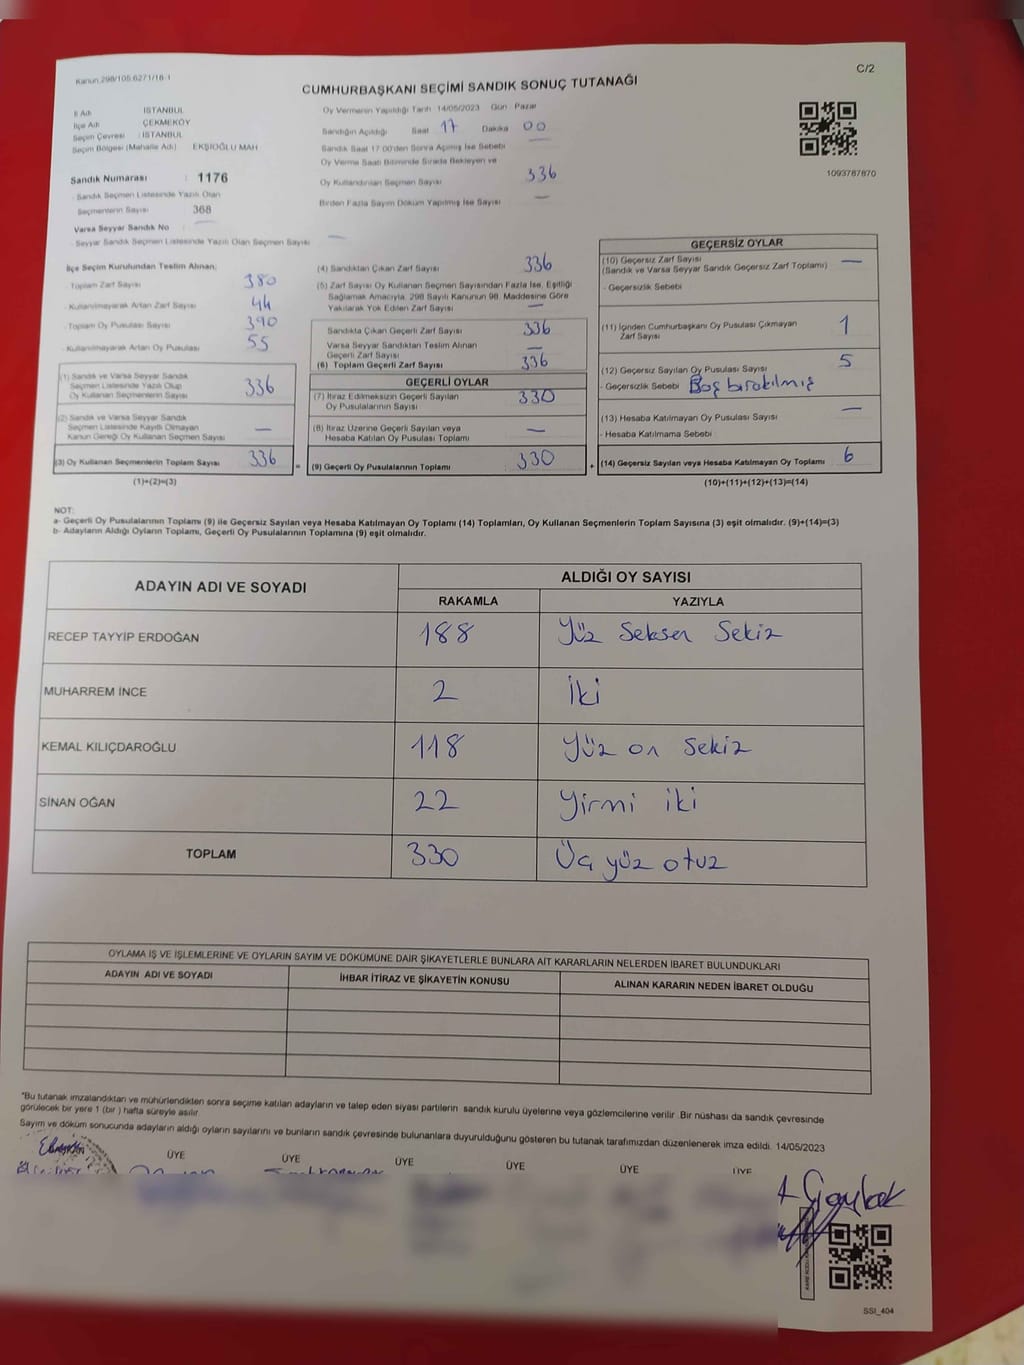 Kanun 298/105.6271/16-1
C/2
CUMHURBAŞKANI SEÇİMİ SANDIK SONUÇ TUTANAĞI
İl Adı : İSTANBUL
İlçe Adı : ÇEKMEKÖY
Seçim Çevresi : İSTANBUL
Seçim Bölgesi (Mahalle Adı) EKŞİOĞLU MAH
Sandık Numarası : 1176
- Sandık Seçmen Listesinde Yazılı Olan
Seçmenlerin Sayısı 368
Varsa Seyyar Sandık No :
- Seyyar Sandık Seçmen Listesinde Yazılı Olan Seçmen Sayısı —
Oy Vermenin Yapıldığı Tarih 14/05/2023 Gün Pazar
Sandığın Açıldığı Saat 17 Dakika 00
Sandık Saat 17:00'den Sonra Açılmış İse Sebebi —
Oy Verme Saati Bitiminde Sırada Bekleyen ve
Oy Kullandırılan Seçmen Sayısı 336
Birden Fazla Sayım Döküm Yapılmış İse Sayısı —
1093787870
İlçe Seçim Kurulundan Teslim Alınan;
- Toplam Zarf Sayısı 380
- Kullanılmayarak Artan Zarf Sayısı 44
- Toplam Oy Pusulası Sayısı 390
- Kullanılmayarak Artan Oy Pusulası 55
(1) Sandık ve Varsa Seyyar Sandık
Seçmen Listesinde Yazılı Olup
Oy Kullanan Seçmenlerin Sayısı 336
(2) Sandık ve Varsa Seyyar Sandık
Seçmen Listesinde Kayıtlı Olmayan
Kanun Gereği Oy Kullanan Seçmen Sayısı —
(3) Oy Kullanan Seçmenlerin Toplam Sayısı 336
(1)+(2)=(3)
=
(4) Sandıktan Çıkan Zarf Sayısı 336
(5) Zarf Sayısı Oy Kullanan Seçmen Sayısından Fazla İse, Eşitliği
Sağlamak Amacıyla, 298 Sayılı Kanunun 98. Maddesine Göre
Yakılarak Yok Edilen Zarf Sayısı —
Sandıkta Çıkan Geçerli Zarf Sayısı 336
Varsa Seyyar Sandıktan Teslim Alınan
Geçerli Zarf Sayısı —
(6) Toplam Geçerli Zarf Sayısı 336
GEÇERLİ OYLAR
(7) İtiraz Edilmeksizin Geçerli Sayılan
Oy Pusulalarının Sayısı 330
(8) İtiraz Üzerine Geçerli Sayılan veya
Hesaba Katılan Oy Pusulası Toplamı —
(9) Geçerli Oy Pusulalarının Toplamı 330
+
GEÇERSİZ OYLAR
(10) Geçersiz Zarf Sayısı —
(Sandık ve Varsa Seyyar Sandık Geçersiz Zarf Toplamı)
- Geçersizlik Sebebi
(11) İçinden Cumhurbaşkanı Oy Pusulası Çıkmayan
Zarf Sayısı 1
(12) Geçersiz Sayılan Oy Pusulası Sayısı 5
- Geçersizlik Sebebi Boş bırakılmış
(13) Hesaba Katılmayan Oy Pusulası Sayısı —
- Hesaba Katılmama Sebebi
(14) Geçersiz Sayılan veya Hesaba Katılmayan Oy Toplamı 6
(10)+(11)+(12)+(13)=(14)
NOT:
a- Geçerli Oy Pusulalarının Toplamı (9) ile Geçersiz Sayılan veya Hesaba Katılmayan Oy Toplamı (14) Toplamları, Oy Kullanan Seçmenlerin Toplam Sayısına (3) eşit olmalıdır. (9)+(14)=(3)
b- Adayların Aldığı Oyların Toplamı, Geçerli Oy Pusulalarının Toplamına (9) eşit olmalıdır.
ADAYIN ADI VE SOYADI ALDIĞI OY SAYISI
RAKAMLA YAZIYLA
RECEP TAYYİP ERDOĞAN 188 Yüz Seksen Sekiz
MUHARREM İNCE 2 İki
KEMAL KILIÇDAROĞLU 118 Yüz on Sekiz
SİNAN OĞAN 22 Yirmi iki
TOPLAM 330 Üç yüz otuz
OYLAMA İŞ VE İŞLEMLERİNE VE OYLARIN SAYIM VE DÖKÜMÜNE DAİR ŞİKAYETLERLE BUNLARA AİT KARARLARIN NELERDEN İBARET BULUNDUKLARI
ADAYIN ADI VE SOYADI İHBAR İTİRAZ VE ŞİKAYETİN KONUSU ALINAN KARARIN NEDEN İBARET OLDUĞU
"Bu tutanak imzalandıktan ve mühürlendikten sonra seçime katılan adayların ve talep eden siyasi partilerin sandık kurulu üyelerine veya gözlemcilerine verilir. Bir nüshası da sandık çevresinde
görülecek bir yere 1 (bir ) hafta süreyle asılır.
Sayım ve döküm sonucunda adayların aldığı oyların sayılarını ve bunların sandık çevresinde bulunanlara duyurulduğunu gösteren bu tutanak tarafımızdan düzenlenerek imza edildi. 14/05/2023
ÜYE ÜYE ÜYE ÜYE ÜYE ÜYE
SSI_404